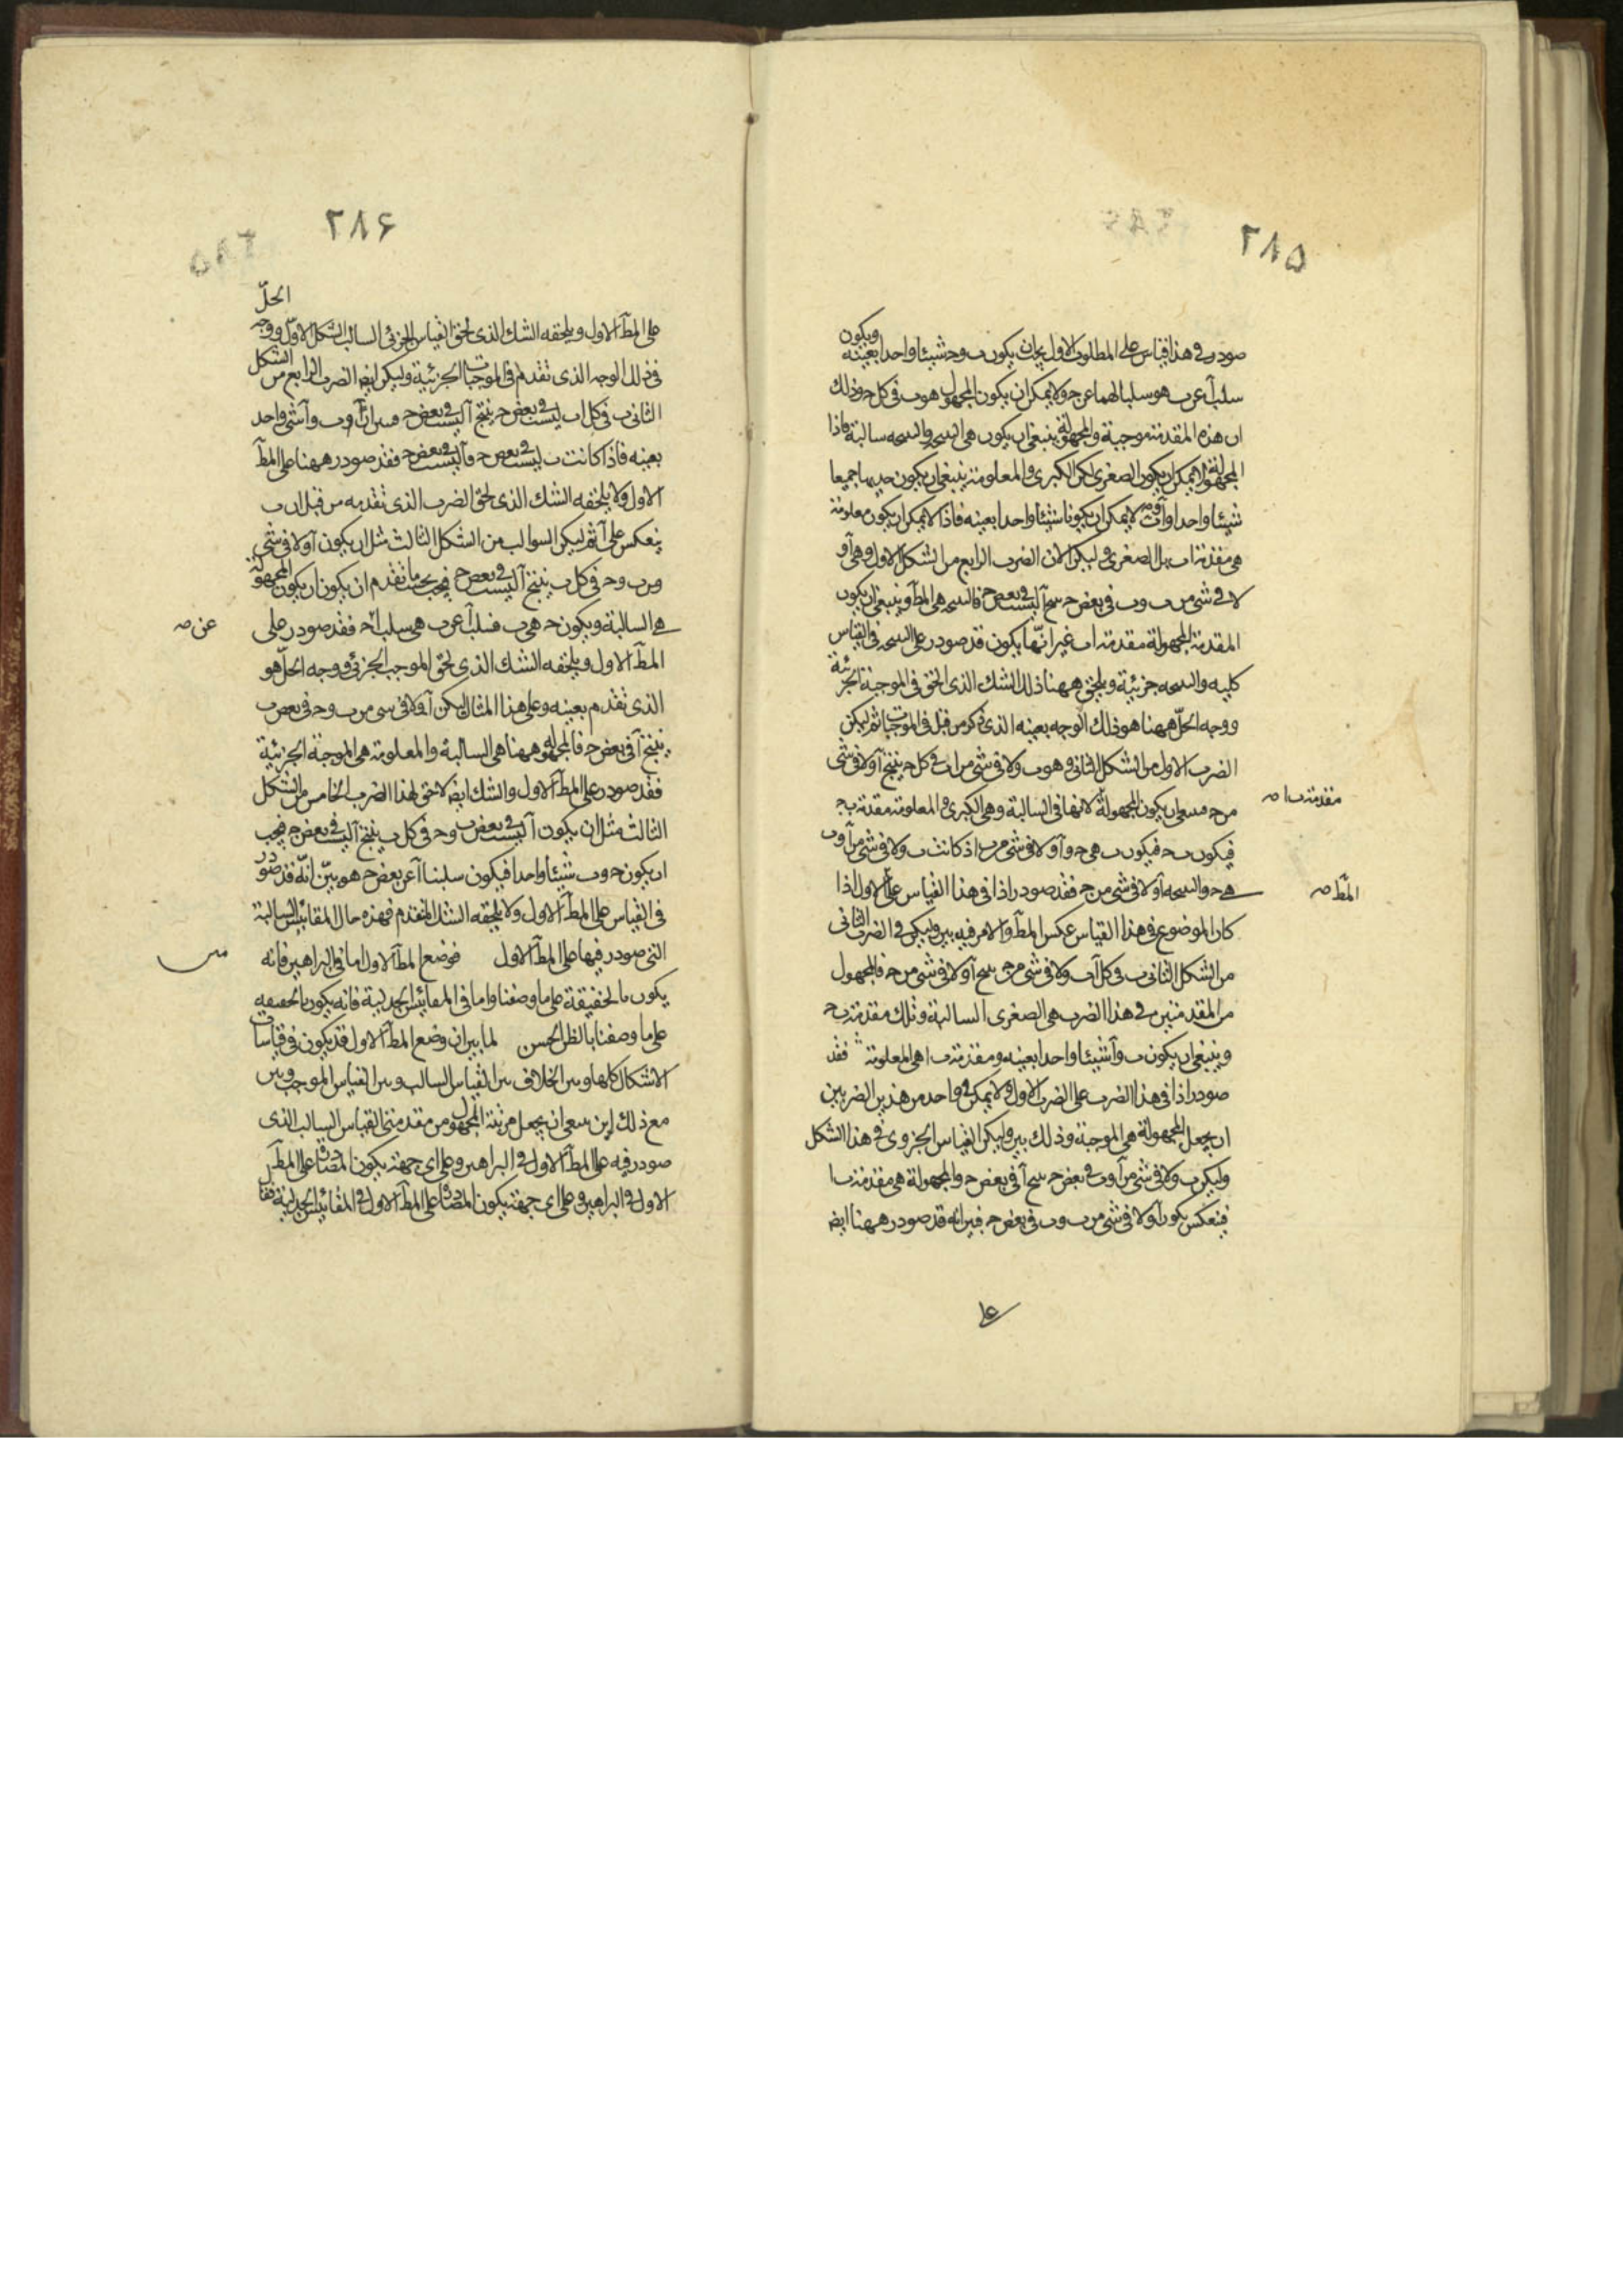 ٢٨٥
صودر فى هذا القياس على المطلوب الاول يجب ان يكون ب وحـ شيئا واحدا بعينه ويكون
سلب آ عن ب هو سلبا لهما عن حـ ولا يمكن ان يكون المجهول هو ب فى كل حـ وذلك
ان هذه المقدمة موجبة والمجهولة ينبغى ان يكون هى النتيجة والنتيجة سالبة فاذا
المجهولة لا يمكن ان يكون الصغرى لكن الكبرى والمعلومة ينبغى ان يكون جميعا
شيئا واحدا و لا يمكن ان يكونا شيئا واحدا بعينه فاذا لا يمكن ان يكون معلومة
هى مقدمة اب بل الصغرى وليكن الان الضرب الرابع من الشكل الاول وهى آ و
لا فى شى من ب وب فى بعض حـ ينتج آ ليست فى بعض حـ فالنتيجة هى المط وينبغى ان يكون
المقدمة المجهولة مقدمة اب غير انها يكون قد صودر على النتيجة فى القياس
كليه والنتيجه جزئية ويلحق ههنا ذلك الشك الذى لحق فى الموجبة الجزئية
ووجه الحل ههنا هو ذلك الوجه بعينه الذى ذكر من قبل فى الموجبات ثم ليكن
الضرب الاول من الشكل الثانى وهو ب ولا فى شى من ا ب فى كل حـ ينتج آ ولا فى شى
من حـ فينبغى ان يكون المجهولة لانها فى السالبة وهى الكبرى والمعلومة مقدمة ب حـ
مقدمة ب ا صه
فيكون ب حـ فيكون ب هى حـ و آ ولا فى شى من ب اذ كانت ب ولا فى شى من آ وب
هى حـ والنتيجه آ ولا فى شى من حـ فقد صودر اذا فى هذا القياس على الاول اذا
المط صه
كان الموضوع فى هذا القياس عكس المط والامر فيه بين وليكن فى الضرب الثانى
من الشكل الثانى ب فى كل آ ب ولا فى شى من حـ ينتج آ ولا فى شى من حـ فالمجهول
من المقدمتين فى هذا الضرب هى الصغرى السالبة وتلك مقدمة ب حـ
وينبغى ان يكون ب و آ شيئا واحدا بعينه ومقدمة ب ا هى المعلومة فقد
صودر اذا فى هذا الضرب على الضرب الاول ولا يمكن فى واحد من هذين الضربين
ان يجعل المجهولة هى الموجبة وذلك بين وليكن القياس الجزوى فى هذا الشكل
وليكن ب ولا فى شى من آ وب فى بعض حـ ينتج آ فى بعض حـ والمجهولة هى مقدمة ب ا
فينعكس يكون آ ولا فى شى من ب وب فى بعض حـ فبين انه قد صودر ههنا ايضا
٢٨۶
على المط الاول ويلحقه الشك الذى لحق القياس الجزئى السالب الشكل الاول ووجه الحل
فى ذلك الوجه الذى تقدم فى الموجبات الجزئية وليكن ايضا الضرب الرابع من الشكل
الثانى ب فى كل ا ب ليست فى بعض حـ ينتج آ ليست فى بعض حـ فبين ان آ وب و آ شى واحد
بعينه فاذا كانت ب ليست فى بعض حـ فآ ليست فى بعض حـ فقد صودر ههنا على المط
الاول ولا يلحقه الشك الذى لحق الضرب الذى تقدمه من قبل ان ب
ينعكس على آ ثم ليكن السوالب من الشكل الثالث مثل ان يكون آ ولا فى شى
من ب وحـ فى كل ب ينتج آ ليست فى بعض حـ فيجب بحسب ما تقدم ان يكون ان يكون المجهولة
هى السالبة ويكون حـ هى ب فسلب آ عن ب هى سلب آ حـ فقد صودر على
عن صه
المط الاول ويلحقه الشك الذى لحق الموجب الجزئى ووجه الحل هو
الذى تقدم بعينه وعلى هذا المثال ليكن آ ولا فى شى من ب وحـ فى بعض ب
ينتج آ فى بعض حـ فالمجهولة ههنا هى السالبة والمعلومة هى الموجبة الجزئية
فقد صودر على المط الاول والشك ايضا لاحق لهذا الضرب الخامس من الشكل
الثالث مثل ان يكون آ ليست فى بعض ب وحـ فى كل ب ينتج آ ليست فى بعض حـ فيجب
ان يكون حـ وب شيئا واحدا فيكون سلبنا آ عن بعض حـ هو بين انه قد صودر
فى القياس على المط الاول ولا يلحقه الشك المتقدم فهذه حال المقائيس السالبة
التى صودر فيها على المط الاول فوضع المط الاول اما فى البراهين فانه
يكون بالحقيقة على ما وصفنا واما فى المقائيس الجدلية فانه يكون بالحقيقه
على ما وصفنا بالظن الحسن لما بين ان وضع المط الاول قد يكون فى قياسات
الاشكال كلها وبين الخلاف بين القياس السالب وبين القياس الموجب وبين
مع ذلك اين ينبغى ان يجعل مرتبة المجهول من مقدمتى القياس السالب الذى
صودر فيه على المط الاول فى البراهين وعلى اى جهة يكون المصادرة على المط
الاول فى البراهين وعلى اى جهة يكون المصادرة على المط الاول فى المقائيس الجدلية فقا